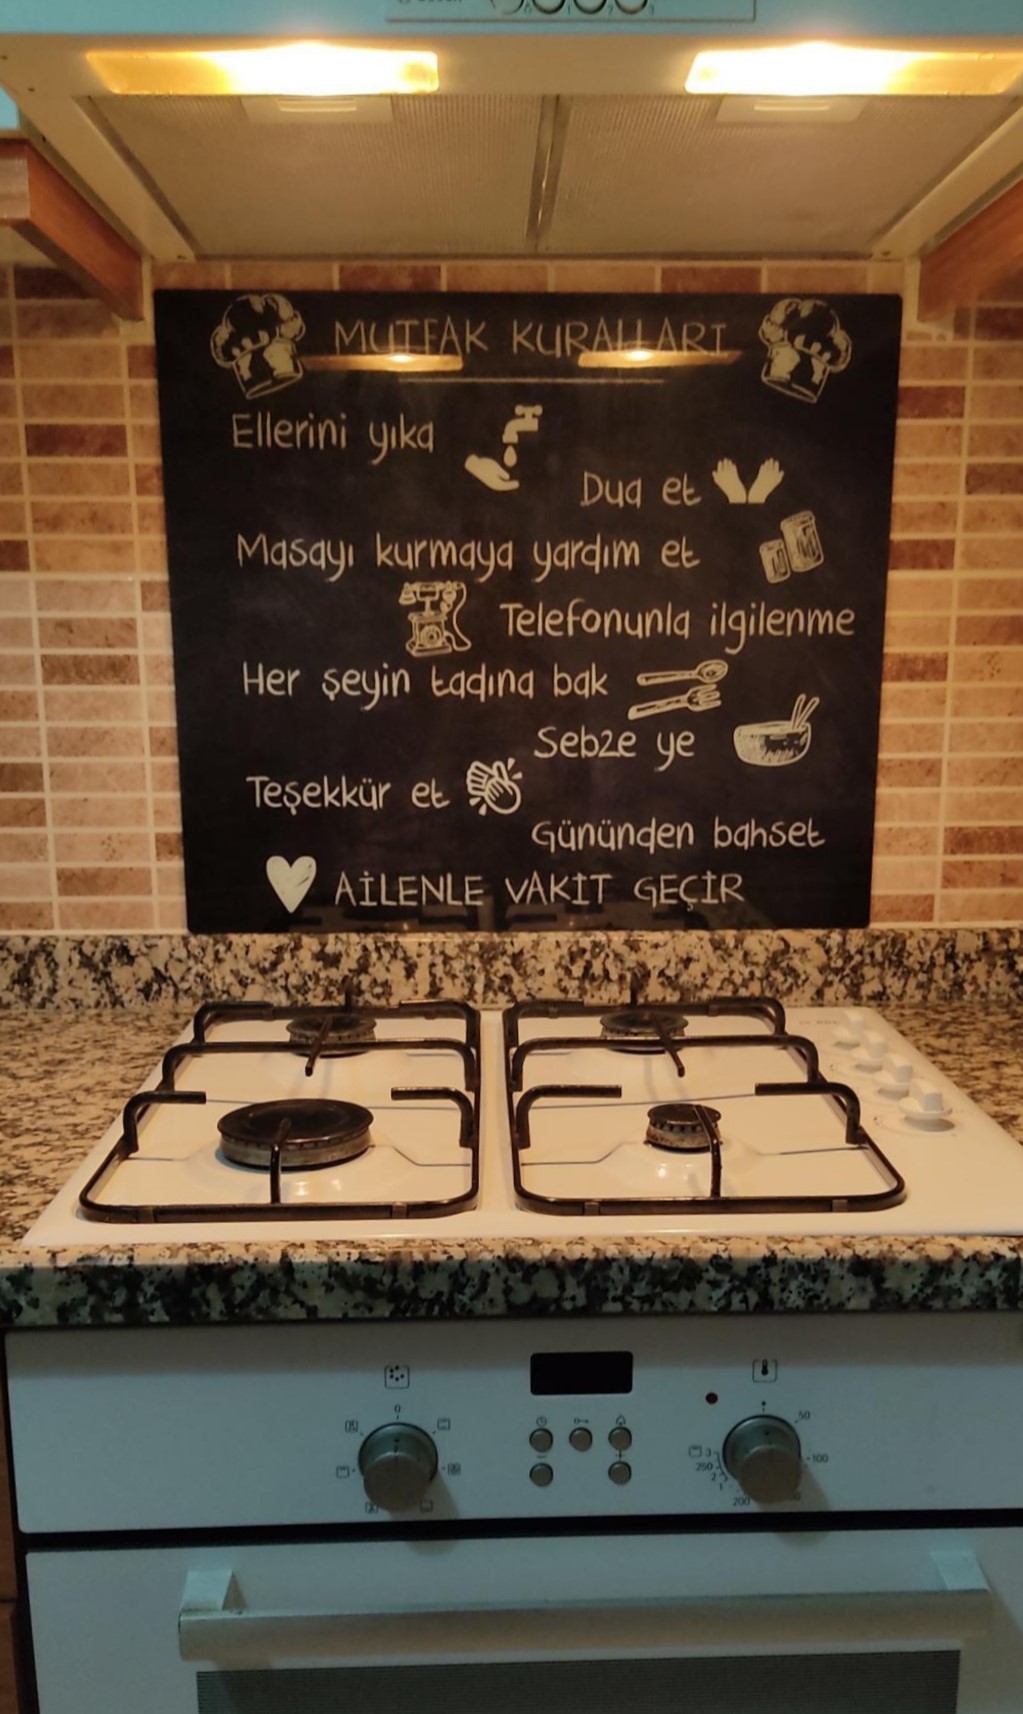 MUTFAK KURALLARI
Ellerini yıka
Dua et
Masayı kurmaya yardım et
Telefonunla ilgilenme
Her şeyin tadına bak
Sebze ye
Teşekkür et
Gününden bahset
AİLENLE VAKİT GEÇİR
0
50
100
200
250
3
2
1